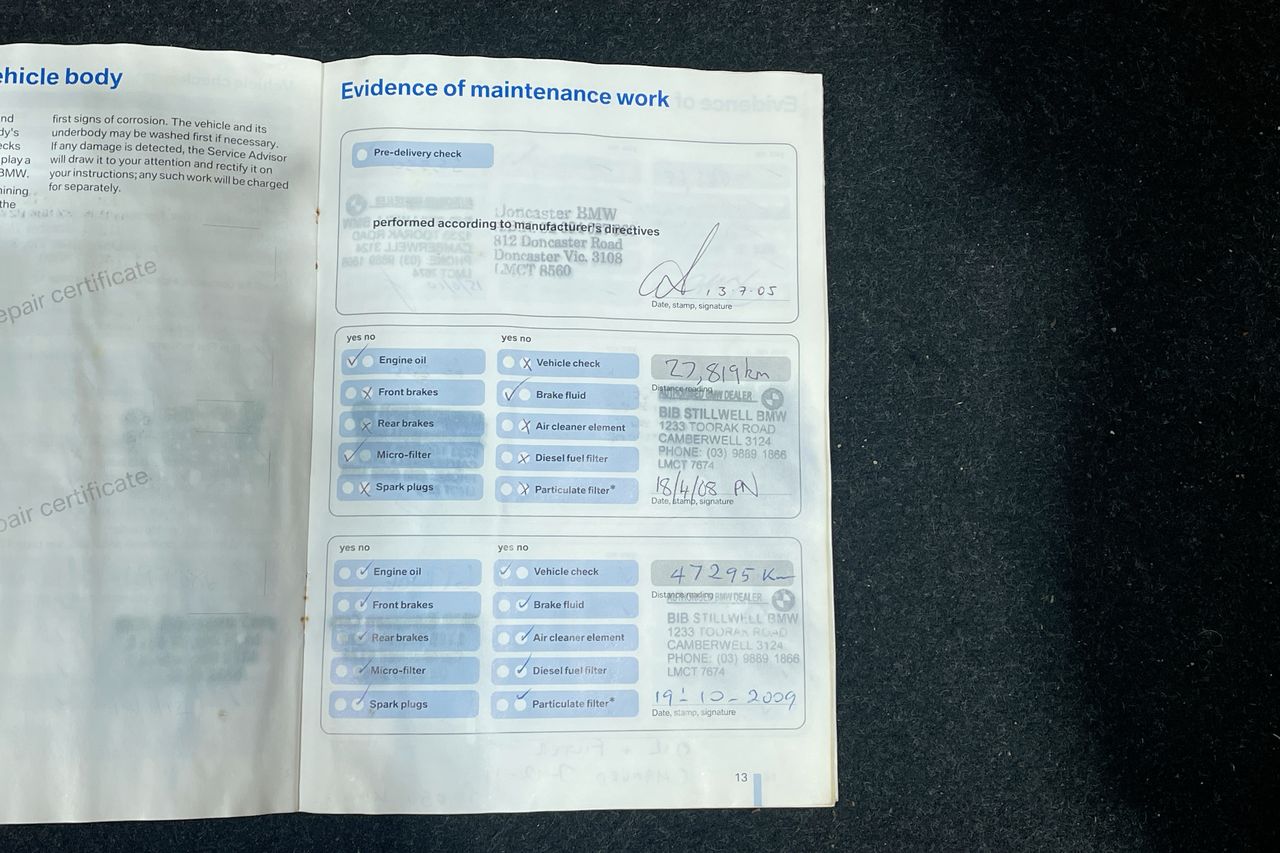 ehicle body
nd
dy's
ecks
play a
BMW.
ining
the
first signs of corrosion. The vehicle and its
underbody may be washed first if necessary.
If any damage is detected, the Service Advisor
will draw it to your attention and rectify it on
your instructions; any such work will be charged
for separately.
epair certificate
pair certificate
Evidence of maintenance work
Pre-delivery check
performed according to manufacturer's directives
Doncaster BMW
812 Doncaster Road
Doncaster Vic. 3108
LMCT 8560
13-7-05
Date, stamp, signature
yes no
yes no
Engine oil
Vehicle check
27,819km
Distance reading
Front brakes
Brake fluid
AUTHORISED BMW DEALER
BIB STILLWELL BMW
Rear brakes
Air cleaner element
1233 TOORAK ROAD
CAMBERWELL 3124
Micro-filter
Diesel fuel filter
PHONE: (03) 9889 1866
LMCT 7674
Spark plugs
Particulate filter*
18/4/08 PN
Date, stamp, signature
yes no
yes no
Engine oil
Vehicle check
47295 Km
Distance reading
Front brakes
Brake fluid
AUTHORISED BMW DEALER
BIB STILLWELL BMW
Rear brakes
Air cleaner element
1233 TOORAK ROAD
CAMBERWELL 3124
Micro-filter
Diesel fuel filter
PHONE: (03) 9889 1866
LMCT 7674
Spark plugs
Particulate filter*
19-10-2009
Date, stamp, signature
13